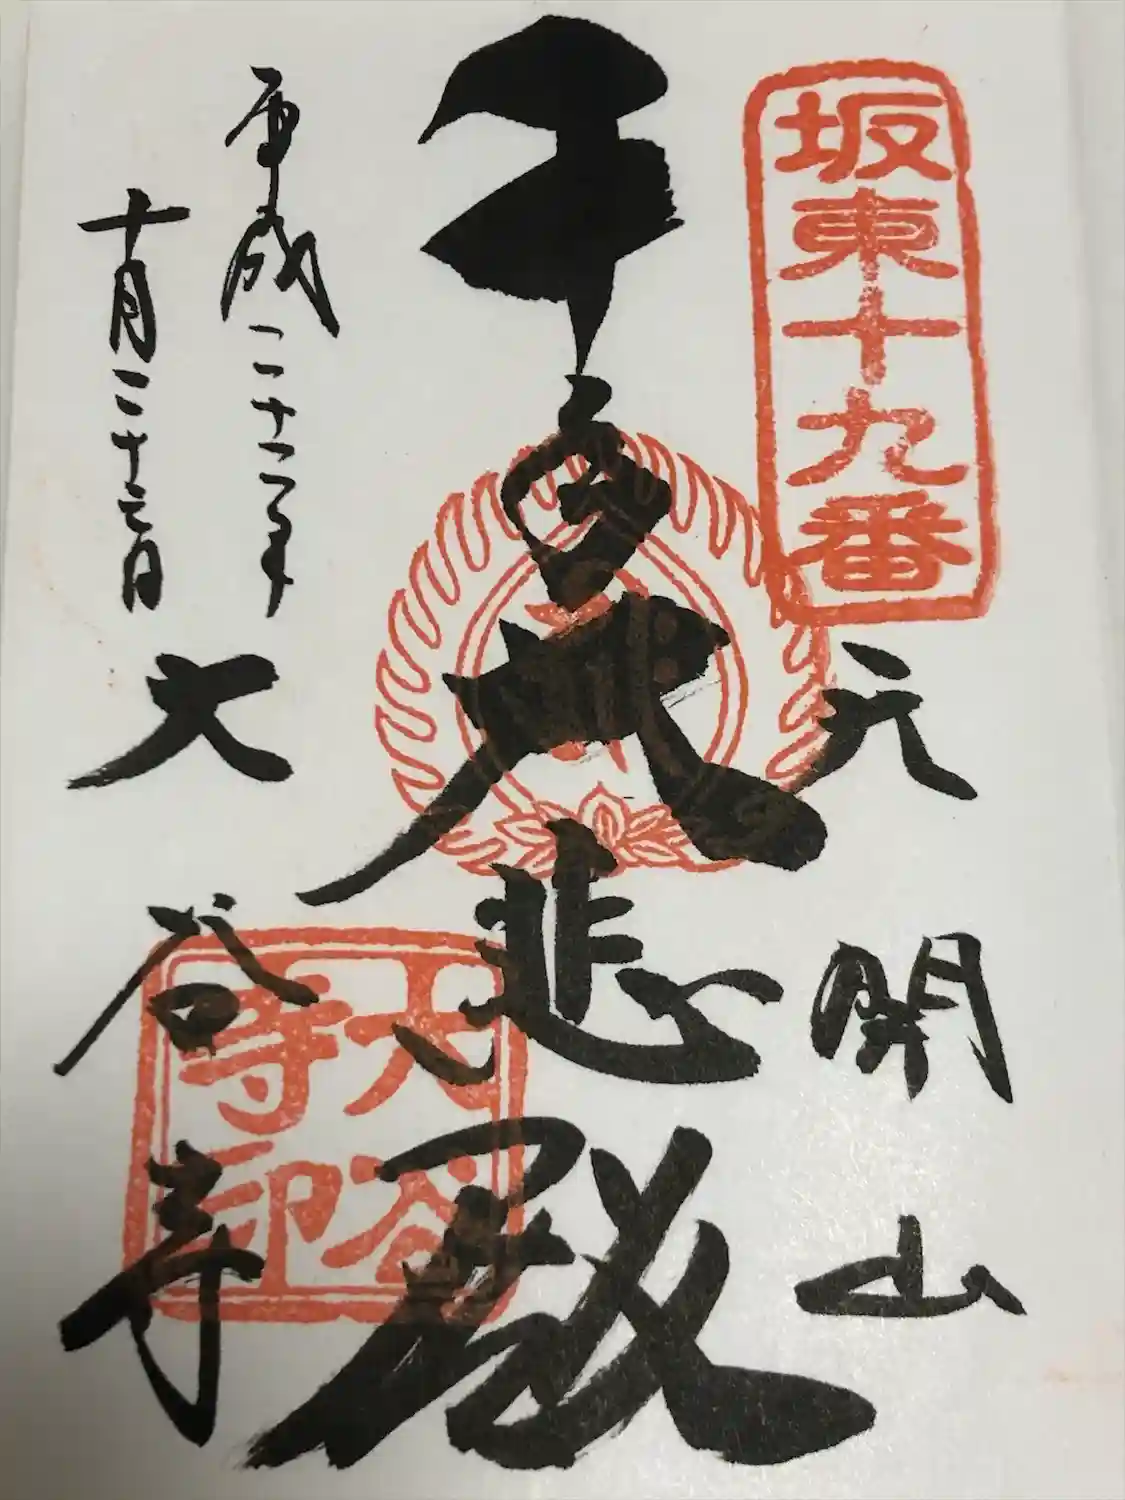 坂東十九番
天開山
千大悲殿
平成二十二年
十月二十日
大谷寺
大谷寺印